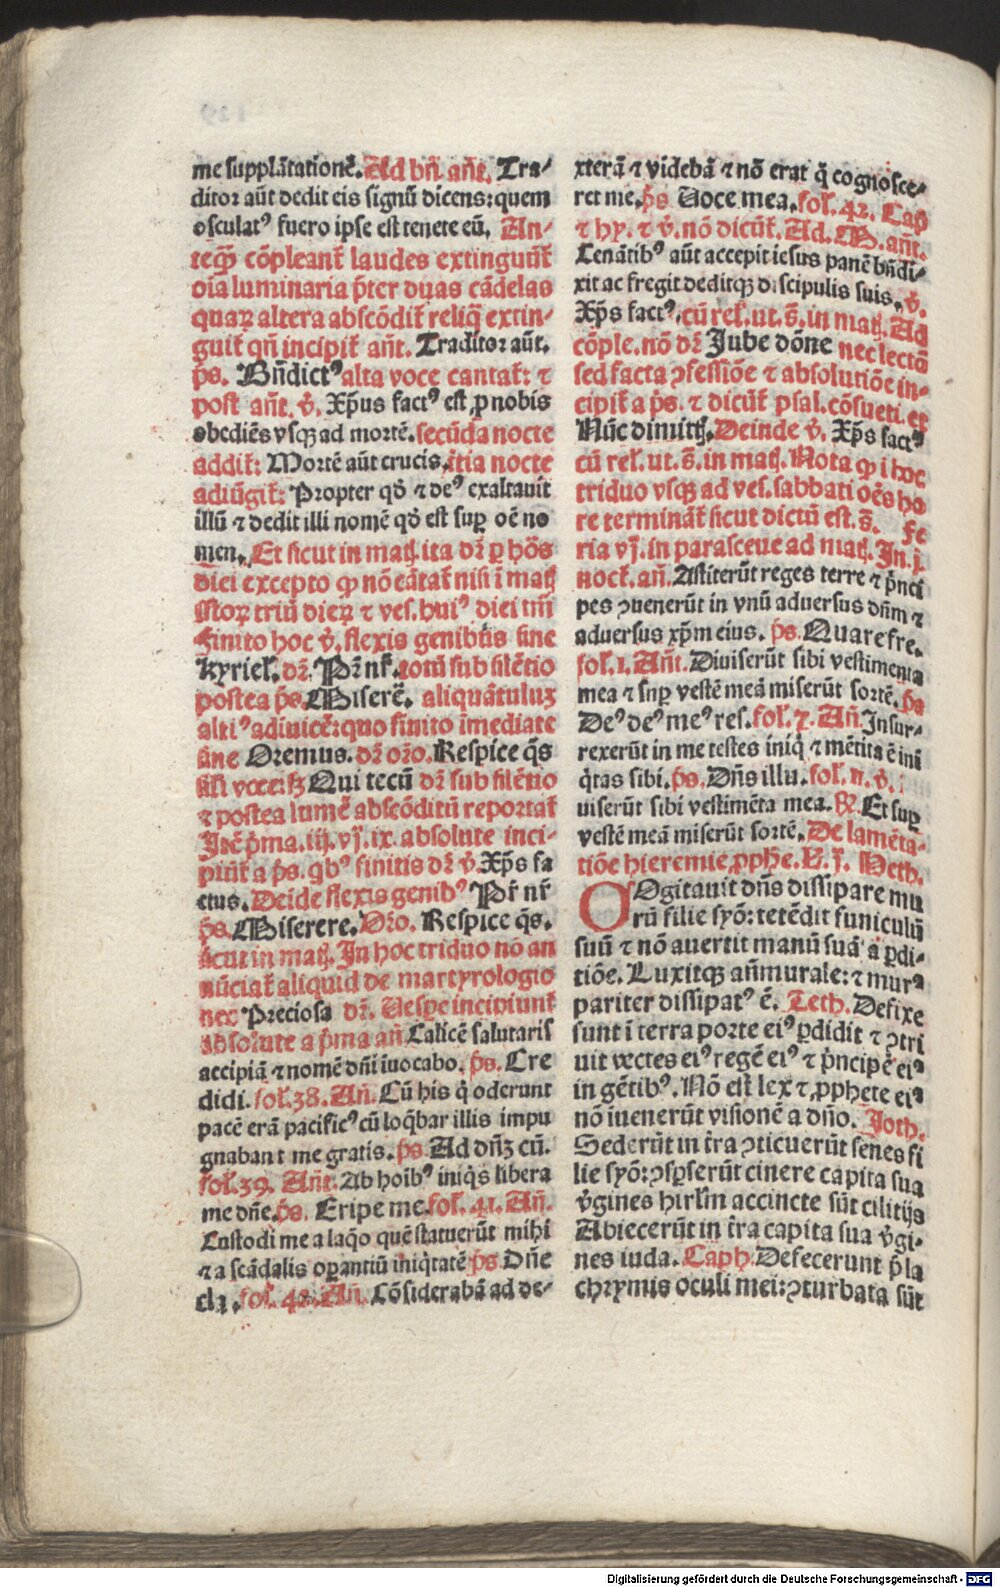 me supplātationē. Ad bñ añt. Tra⸗
ditor aūt dedit eis signū dicens: quem
osculatꝰ fuero ipse est tenete eū. An⸗
teqȝ cōpleant̄ laudes extinguūt̄
oīa luminaria p̄ter duas cādelas
quaꝝ altera abscōdit̄ reliq̄ extin⸗
guit̄ qñ incipit̄ añt. Traditor aūt.
ps. Bñdictꝰ alta voce cantat̄: ⁊
post añt. v̄. Xp̄us factꝰ est ꝓ nobis
obediēs vsqȝ ad mortē. secūda nocte
addit̄: Mortē aūt crucis. t̄tia nocte
adiūgit̄: Propter qd̄ ⁊ deꝰ exaltauit
illū ⁊ dedit illi nomē qd̄ est suꝑ oē no
men. Et sicut in matꝭ. ita dr̄ ꝑ hōs
diei excepto ꝙ nō cātat̄ nisi ī matꝭ
istoꝝ triū dieꝝ ⁊ ves. huiꝰ diei tm̄
Finito hoc v̄. flexis genibus sine
Kyriel̄. dr̄. Pr̄ nr̄. totū sub silētio
postea ps. Miserē. aliquātuluȝ
altiꝰ adinuicē: quo finito īmediate
sine Oremus. dr̄ orō. Respice q̄s
Qui tecū dr̄ sub silētio
⁊ postea lumē abscōditū reportat̄
Itē p̄ma. iij. vj. ix. absolute inci⸗
piūt̄ a ps. qbꝰ finitis dr̄ v̄. Xp̄s fa
ctus. Deīde flexis genibꝰ Pr̄ nr̄
ps. Miserere. Orō. Respice q̄s.
sicut in matꝭ. In hoc triduo nō an
nūciat̄ aliquid de martyrologio
nec Preciosa dr̄. Uespe incipiunt̄
absolute a p̄ma añ Calicē salutaris
accipiā ⁊ nomē dñi īuocabo. ps. Cre
didi. fol̄. 38. Añ. Cū his q̄ oderunt
pacē erā pacificꝰ cū loq̄bar illis impu
gnabant me gratis. ps. Ad dñȝ cū.
fol̄. 39. Añt. Ab hoībꝰ iniq̄s libera
me dñe. ps. Eripe me. fol̄. 41. Añ.
Custodi me a laq̄o quē statuerūt mihi
⁊ a scādalis oꝑantiū iniq̄tatē ps. Dñe
cla. fol̄. 42. Añ. Cōsiderabā ad de⸗
xterā ⁊ videbā ⁊ nō erat q̄ cognosce⸗
ret me. ps. Uoce mea. fol̄. 42. Cap̄
⁊ hy. ⁊ v̄. nō dicūt̄. Ad. M. añt.
Cenātibꝰ aūt accepit iesus panē bñdi⸗
xit ac fregit deditqȝ discipulis suis. v̄.
Xp̄s factꝰ. cū rel̄. ut. s̄. in matꝭ. Ad
cōple. nō dr̄ Jube dōne nec lectō
sed facta ꝯfessiōe ⁊ absolutiōe in⸗
cipit̄ a ps. ⁊ dicūt̄ psal. cōsueti. et
Nūc dimitꝭ. Deinde v̄. Xp̄s factꝰ
cū rel̄. ut. s̄. in matꝭ. Nota ꝙ ī hoc
triduo vsqȝ ad ves. sabbati oēs ho
re terminant̄ sicut dictū est. s̄. Fe
ria vj. in parasceue ad matꝭ. In. j.
noct̄. añ. Astiterūt reges terre ⁊ p̄nci
pes ꝯuenerūt in vnū aduersus dñm ⁊
aduersus xp̄m eius. ps. Quare fre.
fol̄. 1. Añt. Diuiserūt sibi vestimenta
mea ⁊ suꝑ vestē meā miserūt sortē. ps
Deꝰ deꝰ meꝰ res. fol̄. 7. Añ. Insur⸗
rexerūt in me testes iniq̄ ⁊ mētita ē ini
q̄tas sibi. ps. Dñs illu. fol̄. 11. v̄.
uiserūt sibi vestimēta mea. ℟. Et suꝑ
vestē meā miserūt sortē. De lamēta⸗
tiōe hieremie ꝓphe. L. j. Heth.
COgitauit dñs dissipare mu
rū filie syō: tetēdit funiculū
suū ⁊ nō auertit manū suā a ꝑdi⸗
tiōe. Luxitqȝ añmurale: ⁊ murꝰ
pariter dissipatꝰ ē. Teth. Defixe
sunt ī terra porte eiꝰ ꝑdidit ⁊ ꝯtri
uit vectes eiꝰ regē eiꝰ ⁊ p̄ncipē eiꝰ
in gētibꝰ. Nō est lex ⁊ ꝓphete eiꝰ
nō īuenerūt visionē a dño. Joth.
Sederūt in t̄ra ꝯticuerūt senes fi
lie syō: ꝯsꝑserūt cinere capita sua
v̄gines hirlm̄ accincte sūt cilitijs
Abiecerūt in t̄ra capita sua v̄gi⸗
nes iuda. Caph. Defecerunt p̄ la
chrymis oculi mei: ꝯturbata sūt
Digitalisierung gefördert durch die Deutsche Forschungsgemeinschaft - DFG